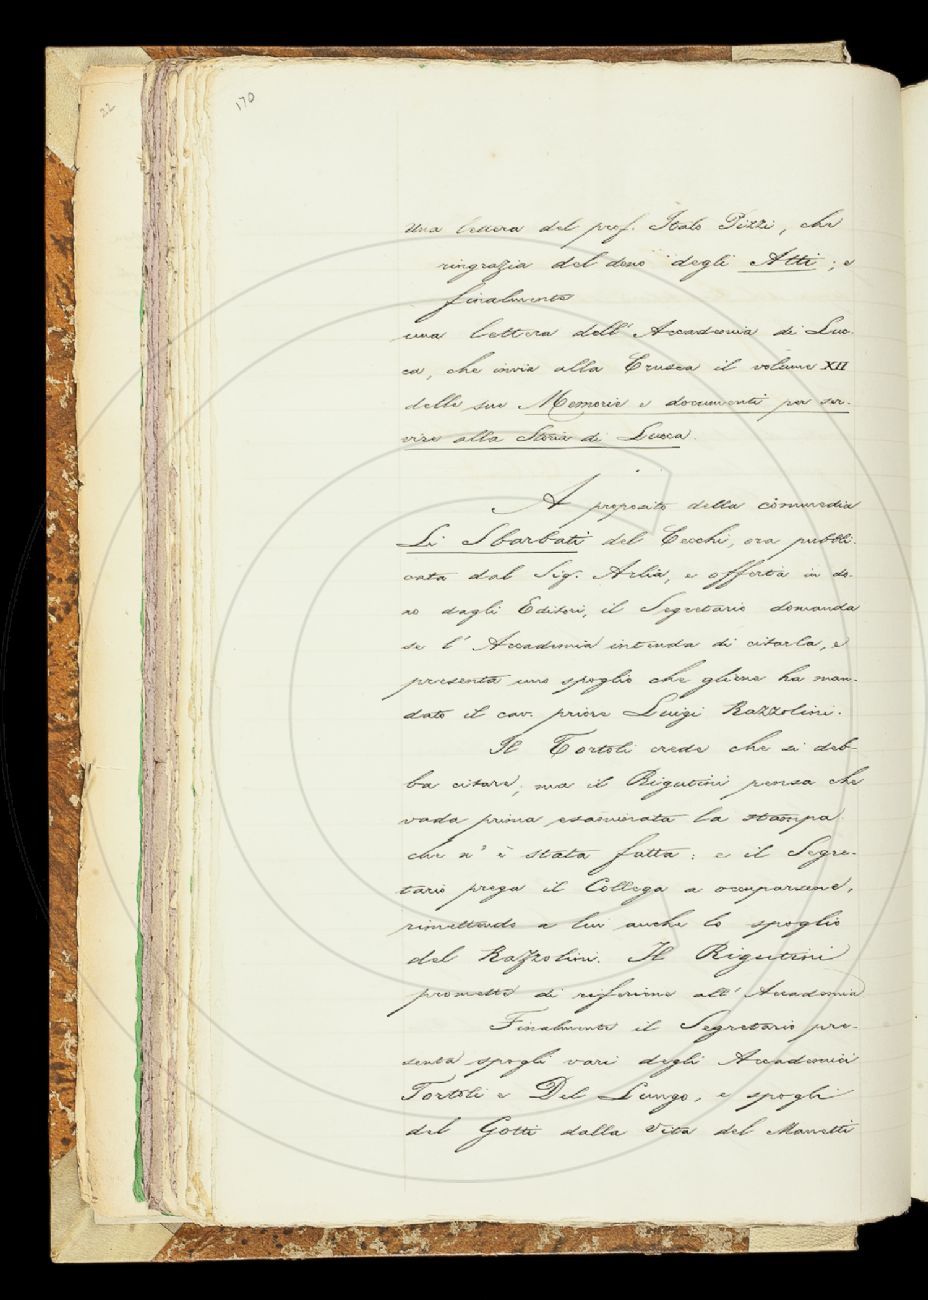 22
170
una lettera del prof. Italo Pizzi, che
ringrazia del dono degli Atti; e
finalmente
una lettera dell'Accademia di Luc-
ca, che invia alla Crusca il volume XII
delle sue Memorie e documenti per ser-
vire alla Storia di Lucca.
A proposito della commedia
Li Sbarbati del Cecchi, ora pubbli-
cata dal Sig. Arlia, e offerta in do-
no dagli Editori, il Segretario domanda
se l'Accademia intenda di citarla, e
presenta uno spoglio che gliene ha man-
dato il cav. priore Luigi Razzolini.
Il Tortoli crede che si deb-
ba citare; ma il Rigutini pensa che
vada prima esaminata la stampa
che n'è stata fatta: e il Segre-
tario prega il Collega a occuparsene,
rimettendo a lui anche lo spoglio
del Razzolini. Il Rigutini
promette di riferirne all'Accademia
Finalmente il Segretario pre-
senta spogli vari degli Accademici
Tortoli e Del Lungo, e spogli
del Gotti dalla Vita del Manetti